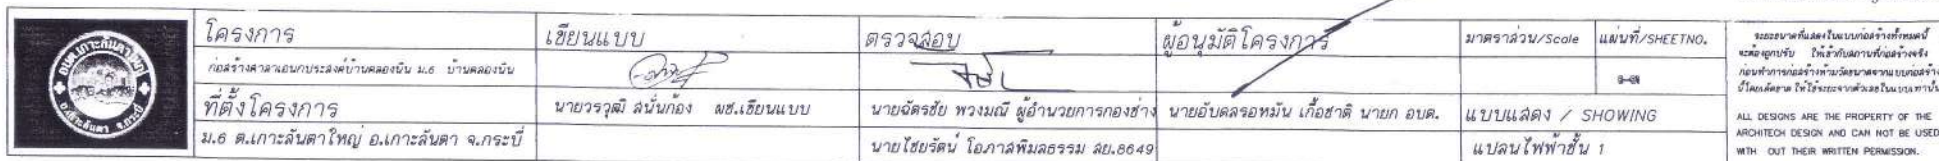 อบต.เกาะลันตาใหญ่
อ.เกาะลันตา จ.กระบี่
โครงการ
ก่อสร้างศาลาเอนกประสงค์บ้านคลองนิน ม.6 บ้านคลองนิน
ที่ตั้งโครงการ
ม.6 ต.เกาะลันตาใหญ่ อ.เกาะลันตา จ.กระบี่
เขียนแบบ
นายวรวุฒิ สนั่นก้อง ผช.เขียนแบบ
ตรวจสอบ
นายฉัตรชัย พวงมณี ผู้อำนวยการกองช่าง
นายไชยรัตน์ โอภาสพิมลธรรม สย.8649
ผู้อนุมัติโครงการ
นายอับดลรอหมัน เกื้อชาติ นายก อบต.
มาตราส่วน/Scale
แผ่นที่/SHEETNO.
แบบแสดง / SHOWING
แปลนไฟฟ้าชั้น 1
ระยะขนาดที่แสดงในแบบก่อสร้างทั้งหมดนี้
จะต้องถูกปรับ ให้เข้ากับสถานที่ก่อสร้างจริง
ก่อนทำการก่อสร้างห้ามวัดขนาดจากแบบก่อสร้าง
นี้โดยเด็ดขาด ให้ใช้ระยะจากตัวเลขในแบบเท่านั้น
ALL DESIGNS ARE THE PROPERTY OF THE
ARCHITECH DESIGN AND CAN NOT BE USED
WITH OUT THEIR WRITTEN PERMISSION.